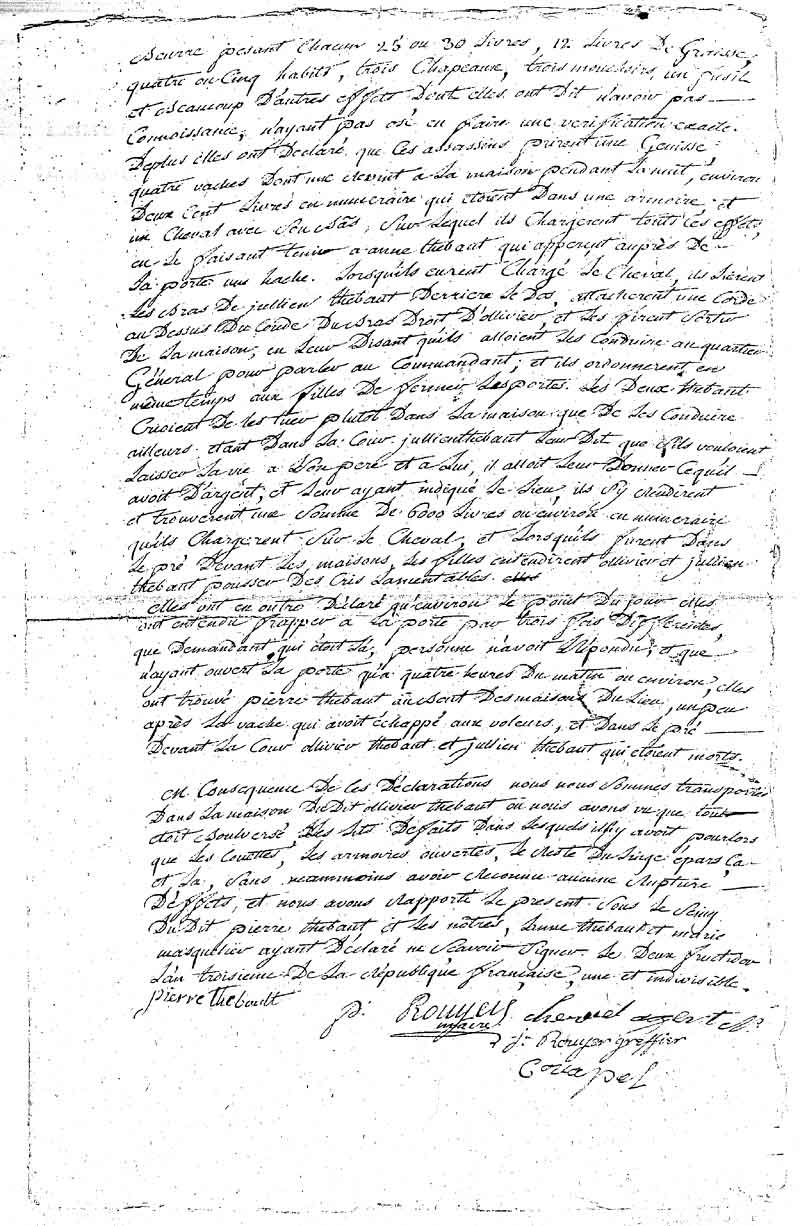 Beurre pesant Chacun 25 ou 30 Livres, 12 Livres De Graisse,
quatre ou Cinq habits, trois Chapeaux, trois mouchoirs, un fusil
et Beaucoup D'autres effets Dont elles ont Dit n'avoir pas —
Connoissance, n'ayant pas osé en faire une verification exacte.
Deplus elles ont Déclaré que Ces assassins prirent une Genisse,
quatre vaches Dont une revint a La maison pendant La nuit, environ
Deux Cent Livres en numeraire qui etoient Dans une armoire et
un Cheval avec Son Bâs, Sur Lequel ils Chargerent touts Ces effets,
en Le faisant tenir a anne thebaut qui apperçut auprès De —
La porte une hache. Lorsquils eurent Chargé Le Cheval, ils Lierent
Les Bras De jullien thebaut Derriere Le Dos, attacherent une Corde
au Dessus Du Coude Du Bras Droit D'ollivier, et Les firent Sortir
De La maison, en Leur Disant qu'ils alloient Les Conduire au quartier
Général pour parler au Commandant; et ils ordonnerent en
même temps aux filles De fermer Les portes. Les Deux thebaut
Crioient De les tuer plutôt Dans La maison que De Les Conduire
ailleurs. etant Dans La Cour, jullien thebaut Leur Dit que s'ils vouloient
Laisser La vie a Son pere et a Lui, il alloit Leur Donner Cequ'il —
avoit D'argent, et Leur ayant indiqué Le Lieu, ils s'y rendirent
et trouverent une Somme De 6000 Livres ou environ en numeraire
qu'ils Chargerent Sur Le Cheval, et Lorsqu'ils furent Dans
Le pré Devant Les maisons, Les filles entendirent ollivier et jullien
thebaut pousser Des Cris Lamentables. elles
elles ont en outre Déclaré qu'environ Le point Du jour elles
ont entendu frapper à La porte par trois fois Differentes,
que Demandant qui étoit Là, personne n'avoit Répondu; et que
n'ayant ouvert La porte qu'a quatre heures Du matin ou environ, elles
ont trouvé pierre thebaut au Bout Des maisons Du Lieu, un peu
après La vache qui avoit échappé aux voleurs, et Dans Le pré —
Devant La Cour ollivier thebaut et jullien thebaut qui etoient morts.
en Consequence De Ces Déclarations nous nous Sommes transportés
Dans La maison DuDit ollivier thebaut où nous avons vu que tout
étoit Boulversé, Les Lits Defaits Dans Lesquels il n'y avoit pourlors
que Les Couettes, Les armoires ouvertes, Le Reste Du Linge epars Çà
et La, Sans neammoins avoir Reconnu aucune Rupture —
D'effets, et nous avons Rapporté Le present Sous Le Seing
DuDit pierre thebaut et Les nôtres, anne thebaut et marie
masquelier ayant Déclaré ne Scavoir Signer. Le Deux fructidor
L'an troisieme De La République française, une et indivisible.
pierre thebault
p. Rouyer Cherviel agent N.al
maire
j. Rouyer greffier
Couapel